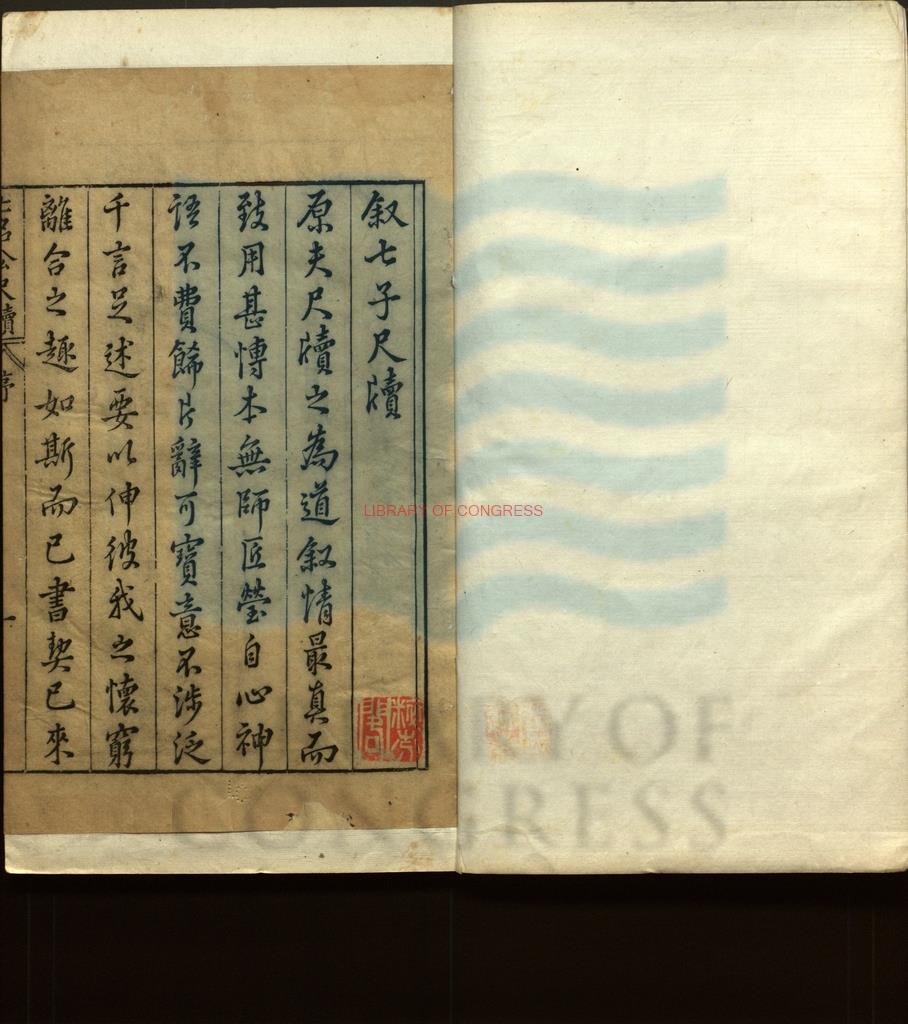 叙七子尺牘
原夫尺牘之為道叙情最真而
致用甚博本無師匠瑩自心神
語不費餙片辭可寶意不涉泛
千言足述要以伸彼我之懷窮
離合之趣如斯而已書契已來
尺牘 序
一
LIBRARY OF CONGRESS
LIBRARY OF
CONGRESS